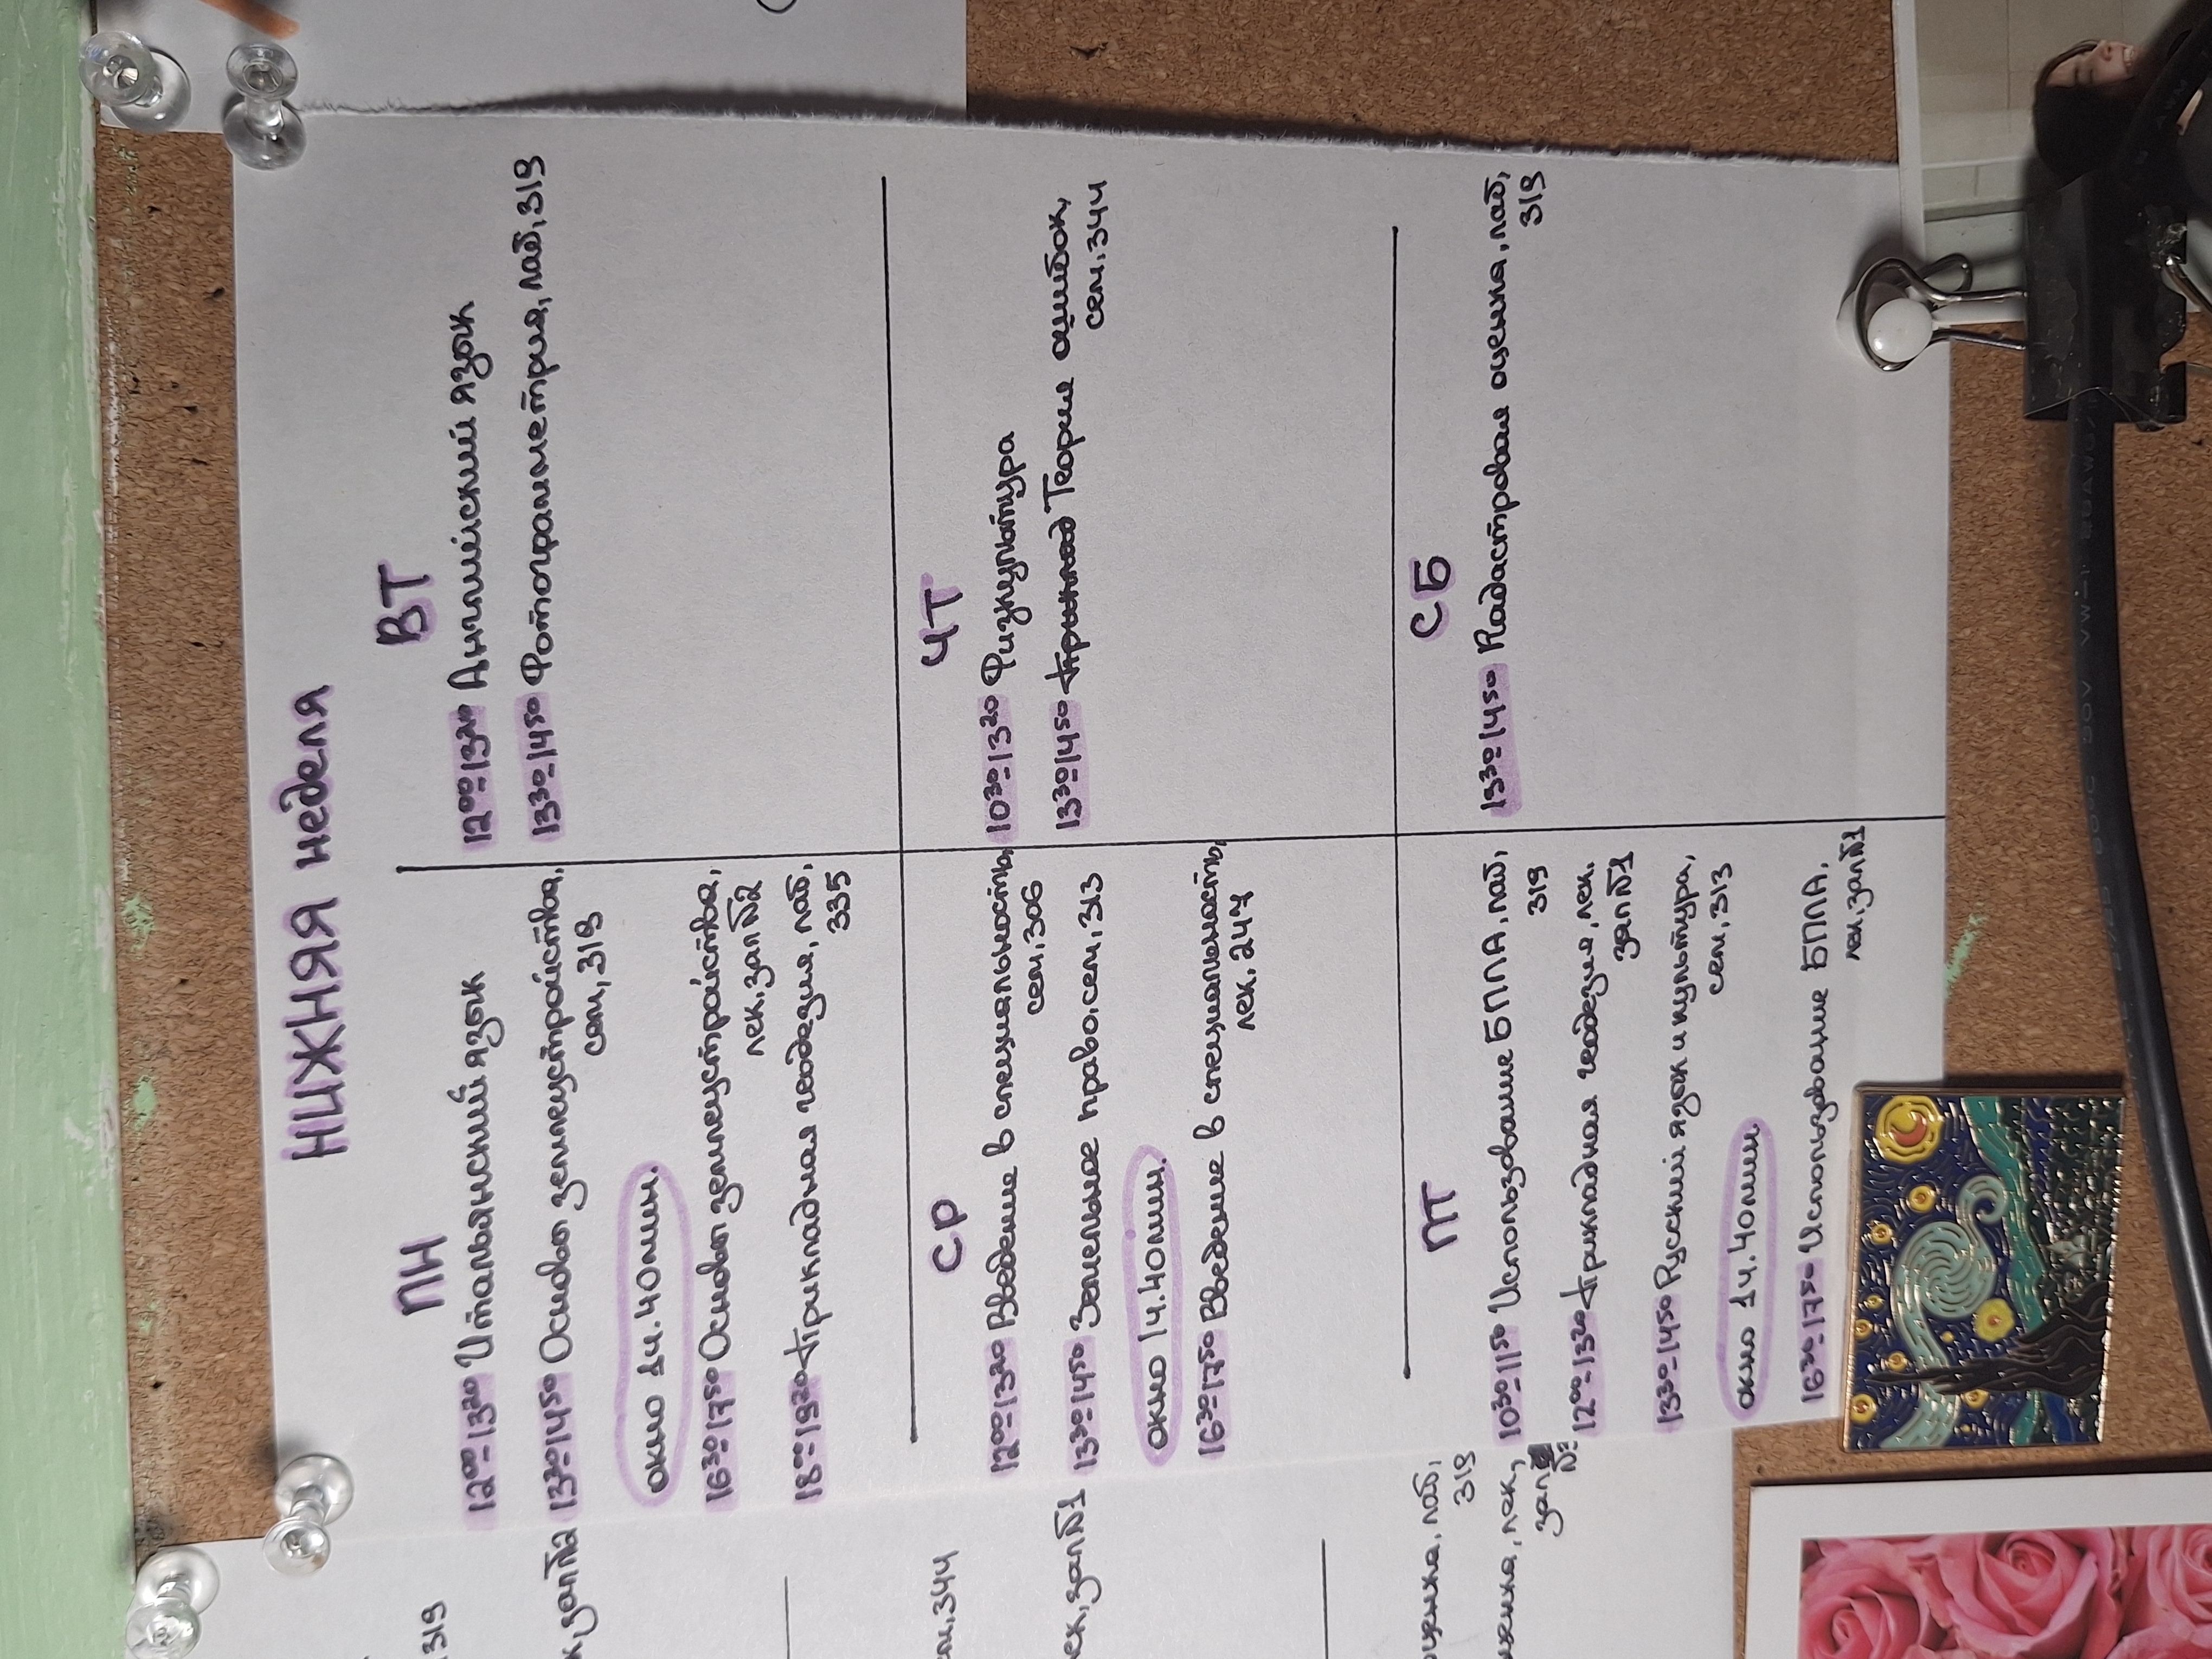 НИЖНЯЯ неделя
ПН
12⁰⁰-13²⁰ Итальянский язык
13³⁰-14⁵⁰ Основы землеустройства,
сем, 319
окно 1ч.40мин.
16³⁰-17⁵⁰ Основы землеустройства,
лек, зал №2
18⁰⁰-19²⁰ Прикладная геодезия, лаб,
335
ВТ
12⁰⁰-13²⁰ Английский язык
13³⁰-14⁵⁰ Фотограмметрия, лаб, 319
СР
12⁰⁰-13²⁰ Введение в специальность,
сем, 306
13³⁰-14⁵⁰ Земельное право, сем, 313
окно 1ч.40мин.
16³⁰-17⁵⁰ Введение в специальность,
лек, 247
ЧТ
10³⁰-13²⁰ Физкультура
13³⁰-14⁵⁰ Приклад Теория ошибок,
сем, 344
ПТ
10³⁰-11⁵⁰ Использование БПЛА, лаб,
319
12⁰⁰-13²⁰ Прикладная геодезия, лек.
зал №1
13³⁰-14⁵⁰ Русский язык и культура,
сем, 313
окно 1ч.40мин
16³⁰-17⁵⁰ Использование БПЛА,
лек, зал №1
СБ
13³⁰-14⁵⁰ Кадастровая оценка, лаб,
319
319
к, зал №2
ем, 344
ек, зал №1
оценка, лаб,
319
лек,
зал